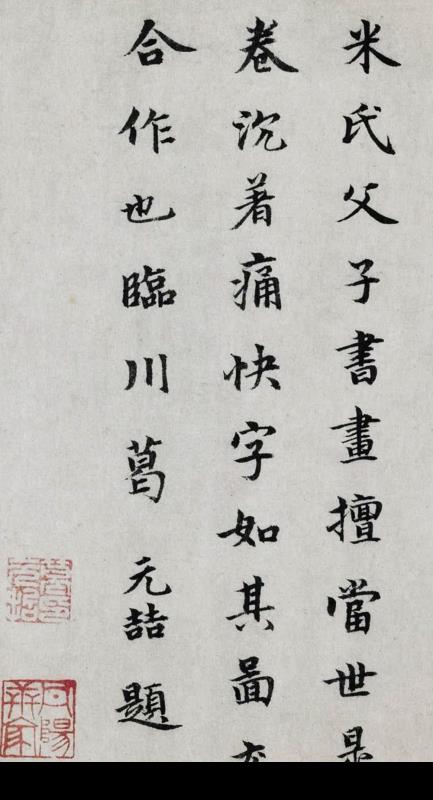 米氏父子書畫擅當世是
卷沉著痛快字如其圖
合作也臨川葛元喆題